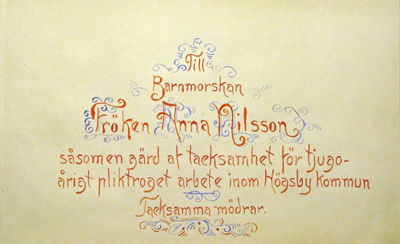 Till
Barnmorskan
Fröken Anna Nilsson
såsom en gärd af tacksamhet för tjugo-
årigt pliktroget arbete inom Högsby kommun
Tacksamma mödrar.